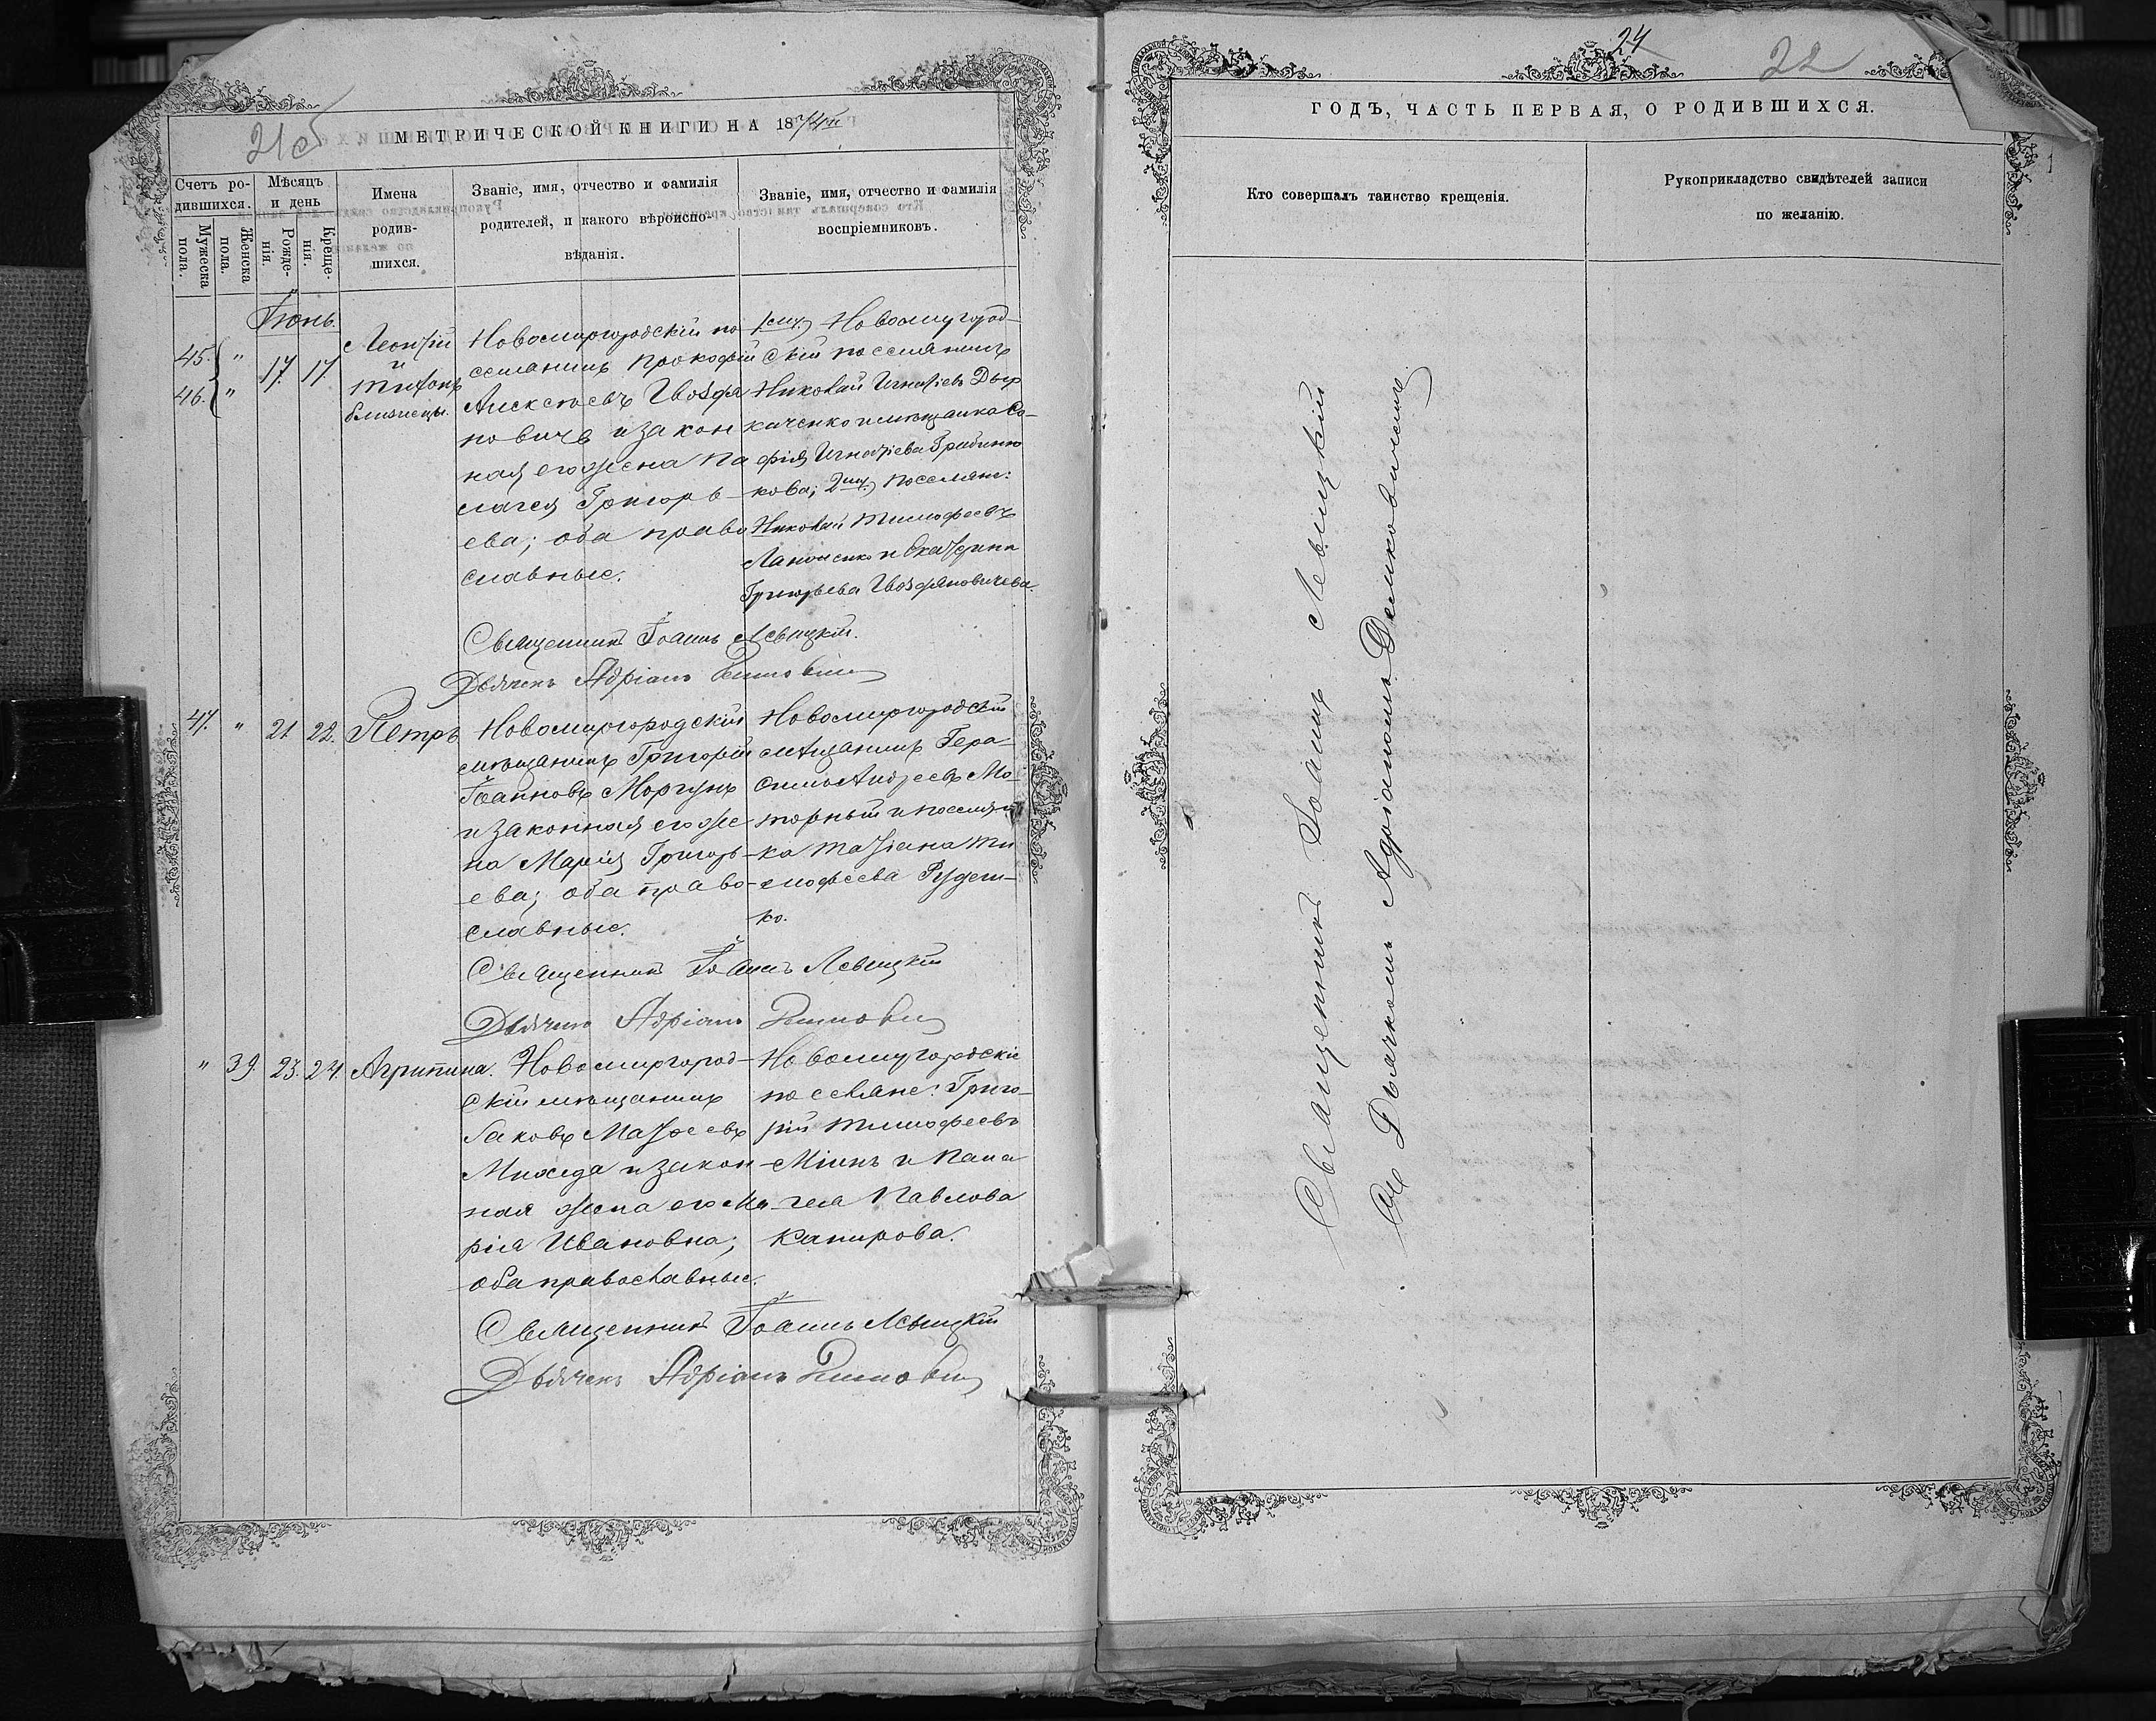 21 об
МЕТРИЧЕСКОЙ КНИГИ НА 1874й
Счетъ ро-
дившихся.
Мужеска
пола.
Женска
пола.
Мѣсяцъ
и день
Рожде-
нія.
Креще-
нія.
Имена
родив-
шихся.
Званіе, имя, отчество и фамилія
родителей, и какого вѣроиспо-
вѣданія.
Званіе, имя, отчество и фамилія
воспріемниковъ.
Іюнь.
45. "
46. "
17. 17
Леонтій
и
Тихонъ
близнецы.
Новомиргородскій по
селянинъ Прокофій
Алексѣевъ Гвоздя
новичъ и закон
ная его жена Па
лагея Григорь-
ева; оба право
славные.
Новомиргород-
скій поселянинъ
Николай Игнатіевъ
каченко и мѣщанка Со-
фія Игнатіева
кова; поселян:
Николай Тимофеевъ
и Екатерина
Григорьева Гвоздяновичева.
Священникъ Іоаннъ Левицкій.
Дьячекъ Адріанъ
47. " 21 22. Петръ
Новомиргородскій
мѣщанинъ Григорій
Іоанновъ Моргунъ
и законная его же
на Марія Григорь-
ева; оба право-
славные.
Новомиргородскій
мѣщанинъ Гера-
симъ Андреевъ Мо-
торный и поселян
ка Татіана Ти
мофеева Руден-
ко.
Священникъ Іоаннъ Левицкій
Дьячекъ Адріанъ
" 39. 23. 24. Агрипина.
Новомиргород-
скій мѣщанинъ
Іаковъ Матѳеевъ
и закон-
ная жена его Ма
рія Ивановна;
оба православные.
Новомиргородскіе
поселяне: Григо-
рій Тимофеевъ
и Пала
гея Павлова
Капирова.
Священникъ Іоаннъ Левицкій
Дьячекъ Адріанъ
24
22
ГОДЪ, ЧАСТЬ ПЕРВАЯ, О РОДИВШИХСЯ.
Кто совершалъ таинство крещенія.
Рукоприкладство свидѣтелей записи
по желанію.
Священникъ Іоаннъ Левицкій
съ Дьячкомъ Адріаномъ Демковичемъ.